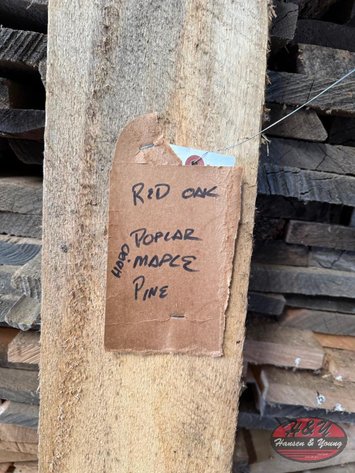 RED OAK
POPLAR
HARD MAPLE
PINE
H&Y
Hansen & Young